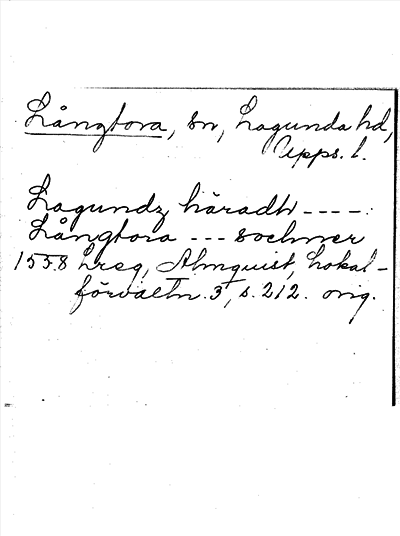 Långtora, sn, Lagunda hd,
Upps. l.
Lagundz häradh ----:
Långtora --- sochner
1558 Lreg, Almquist, Lokal-
förvaltn. 3, s. 212. orig.